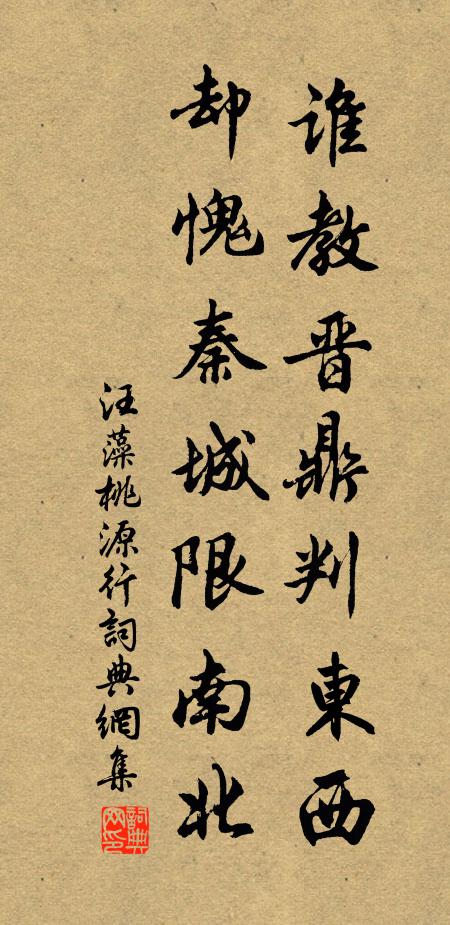 誰教晋鼎判東西
却愧秦城限南北
汪藻桃源行詞典網集
詞典网印